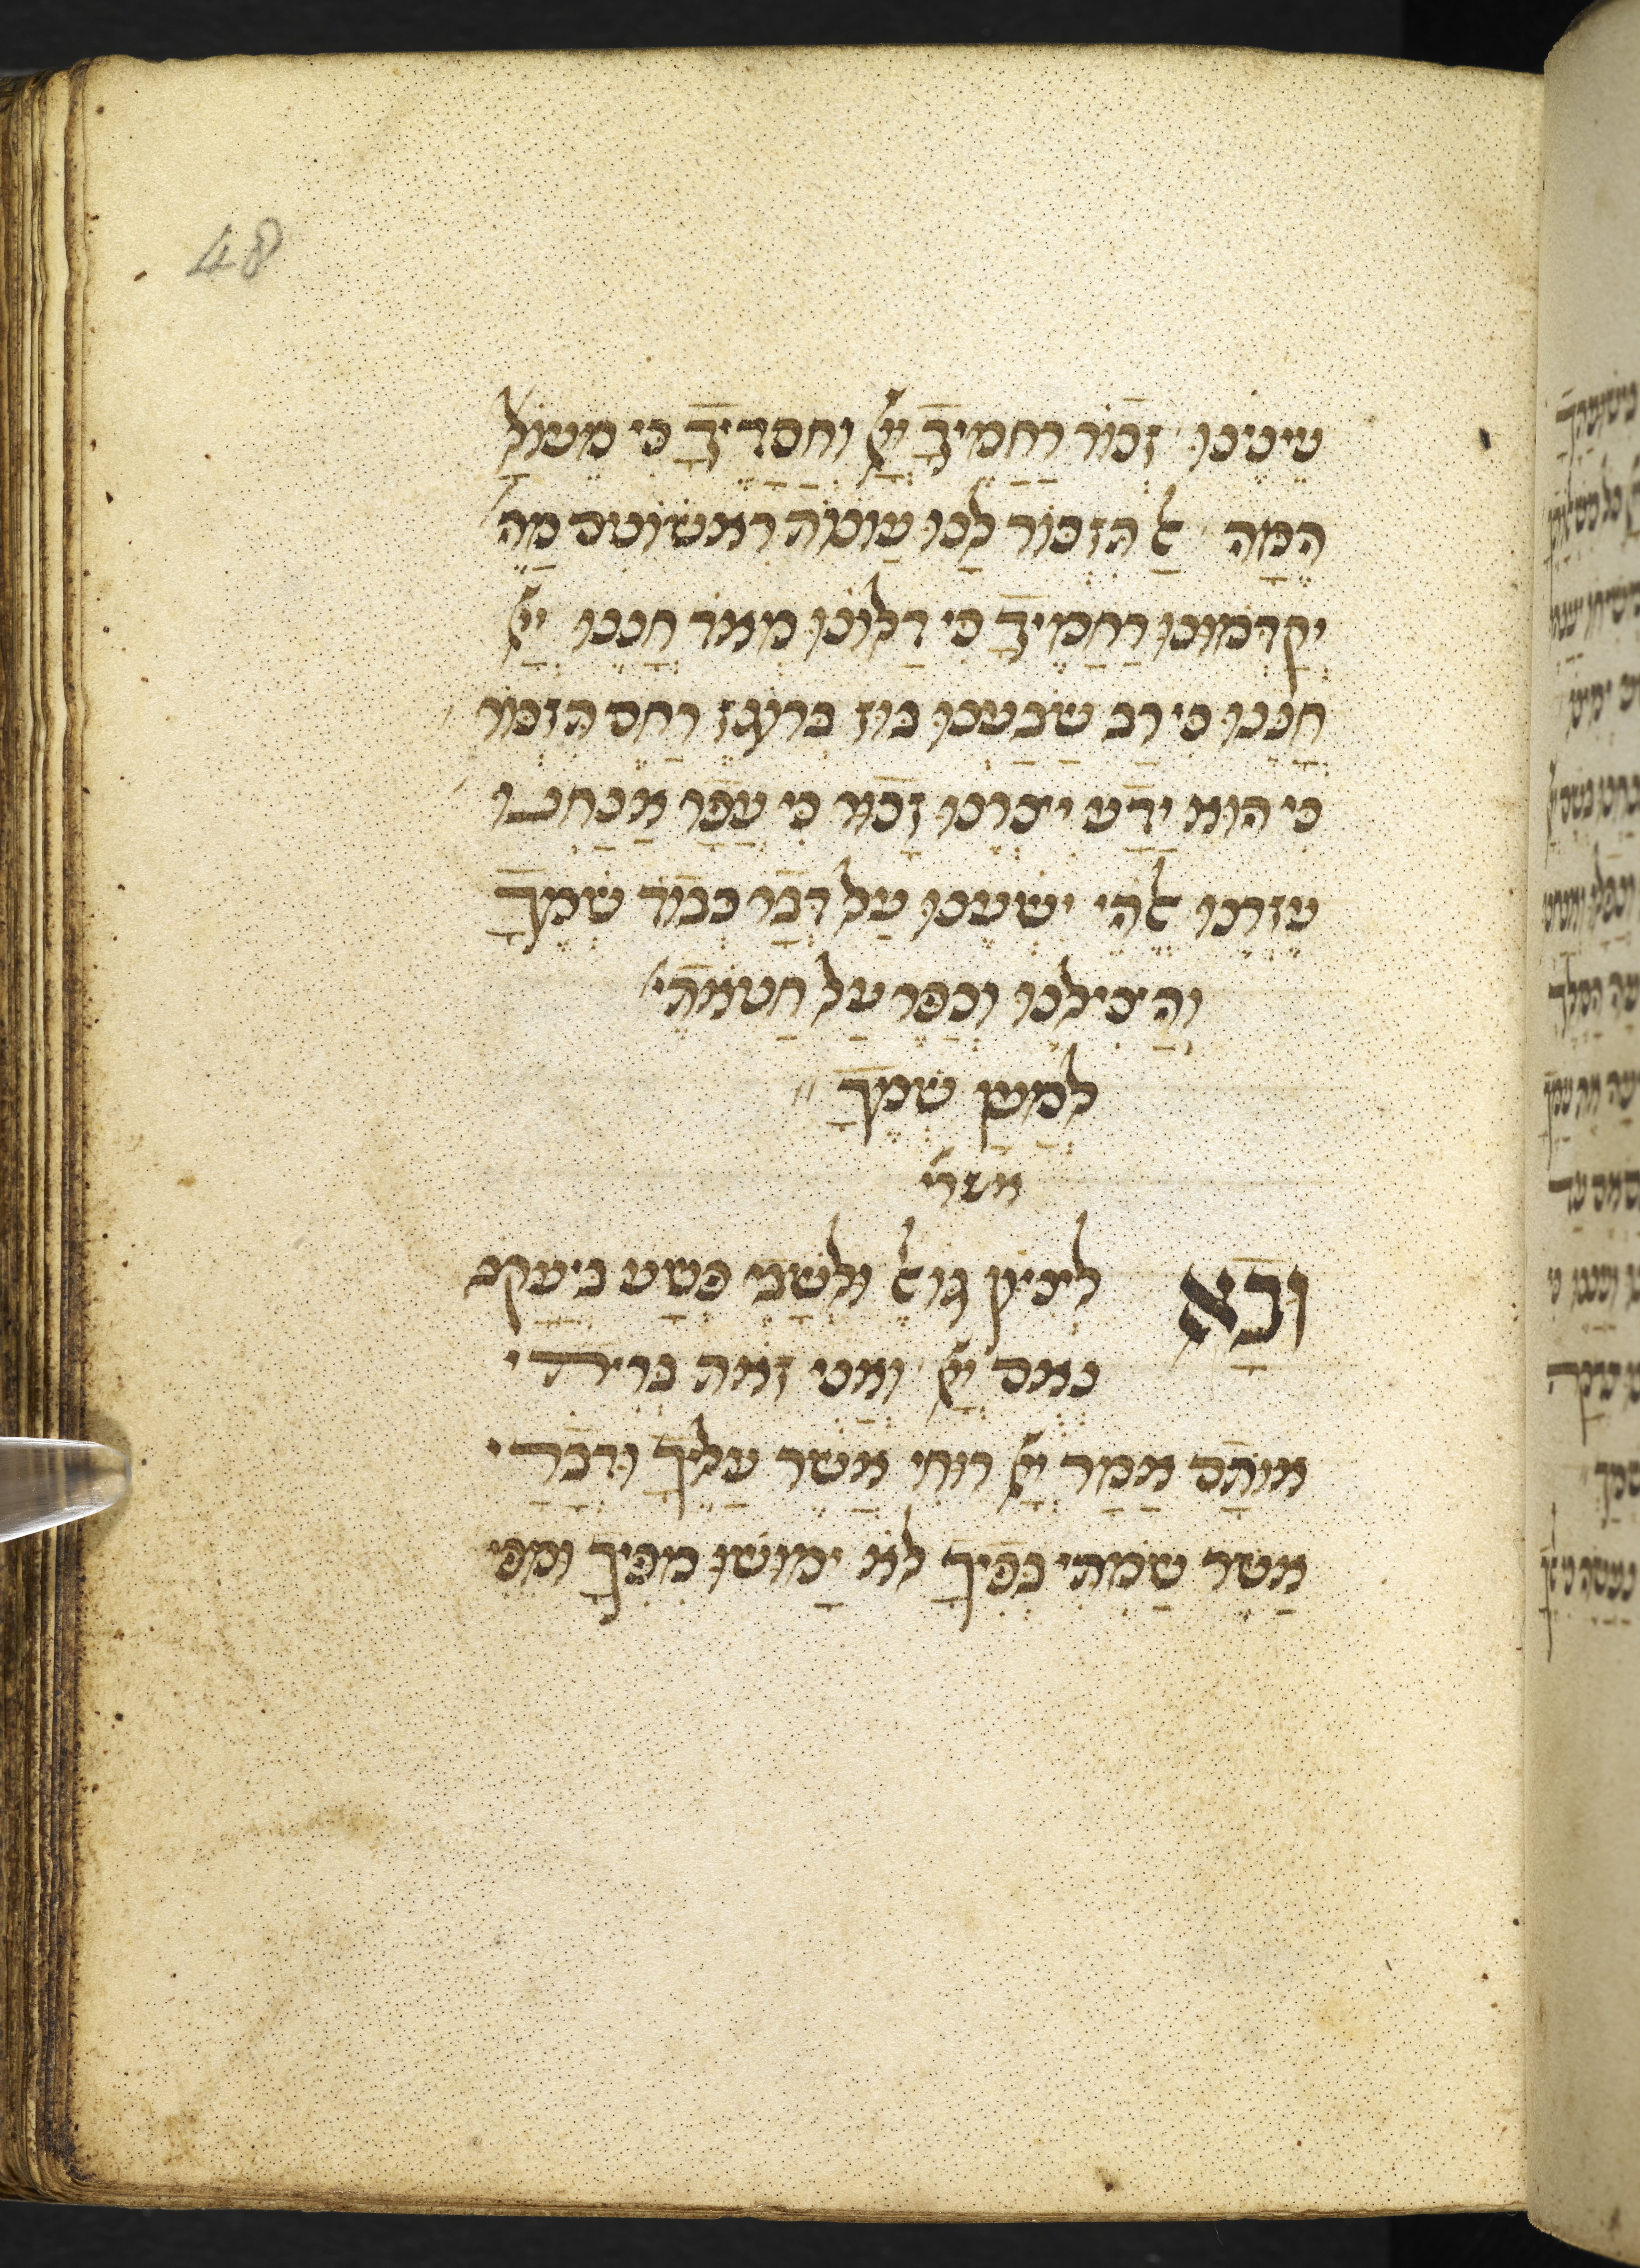 48
עינינו זכור רחמיך יי וחסדיך כי מעול'
המה אל תזכור לנו עונות ראשונים מה'
יקדמונו רחמיך כי דלונו מאד חננו יי
חננו כי רב שבענו בוז ברוגז רחם תזכור
כי הוא ידע יצרנו זכור כי עפר אנחנו
עזרנו אלהי ישענו על דבר כבוד שמך
והצילנו וכפר על חטאתי'
למען שמך
אשרי
ובא לציון גואל ולשבי פשע ביעקב
נאם יי ואני זאת בריתי
אותם אמר יי רוחי אשר עליך ודברי
אשר שמתי בפיך לא ימושו מפיך ומפי